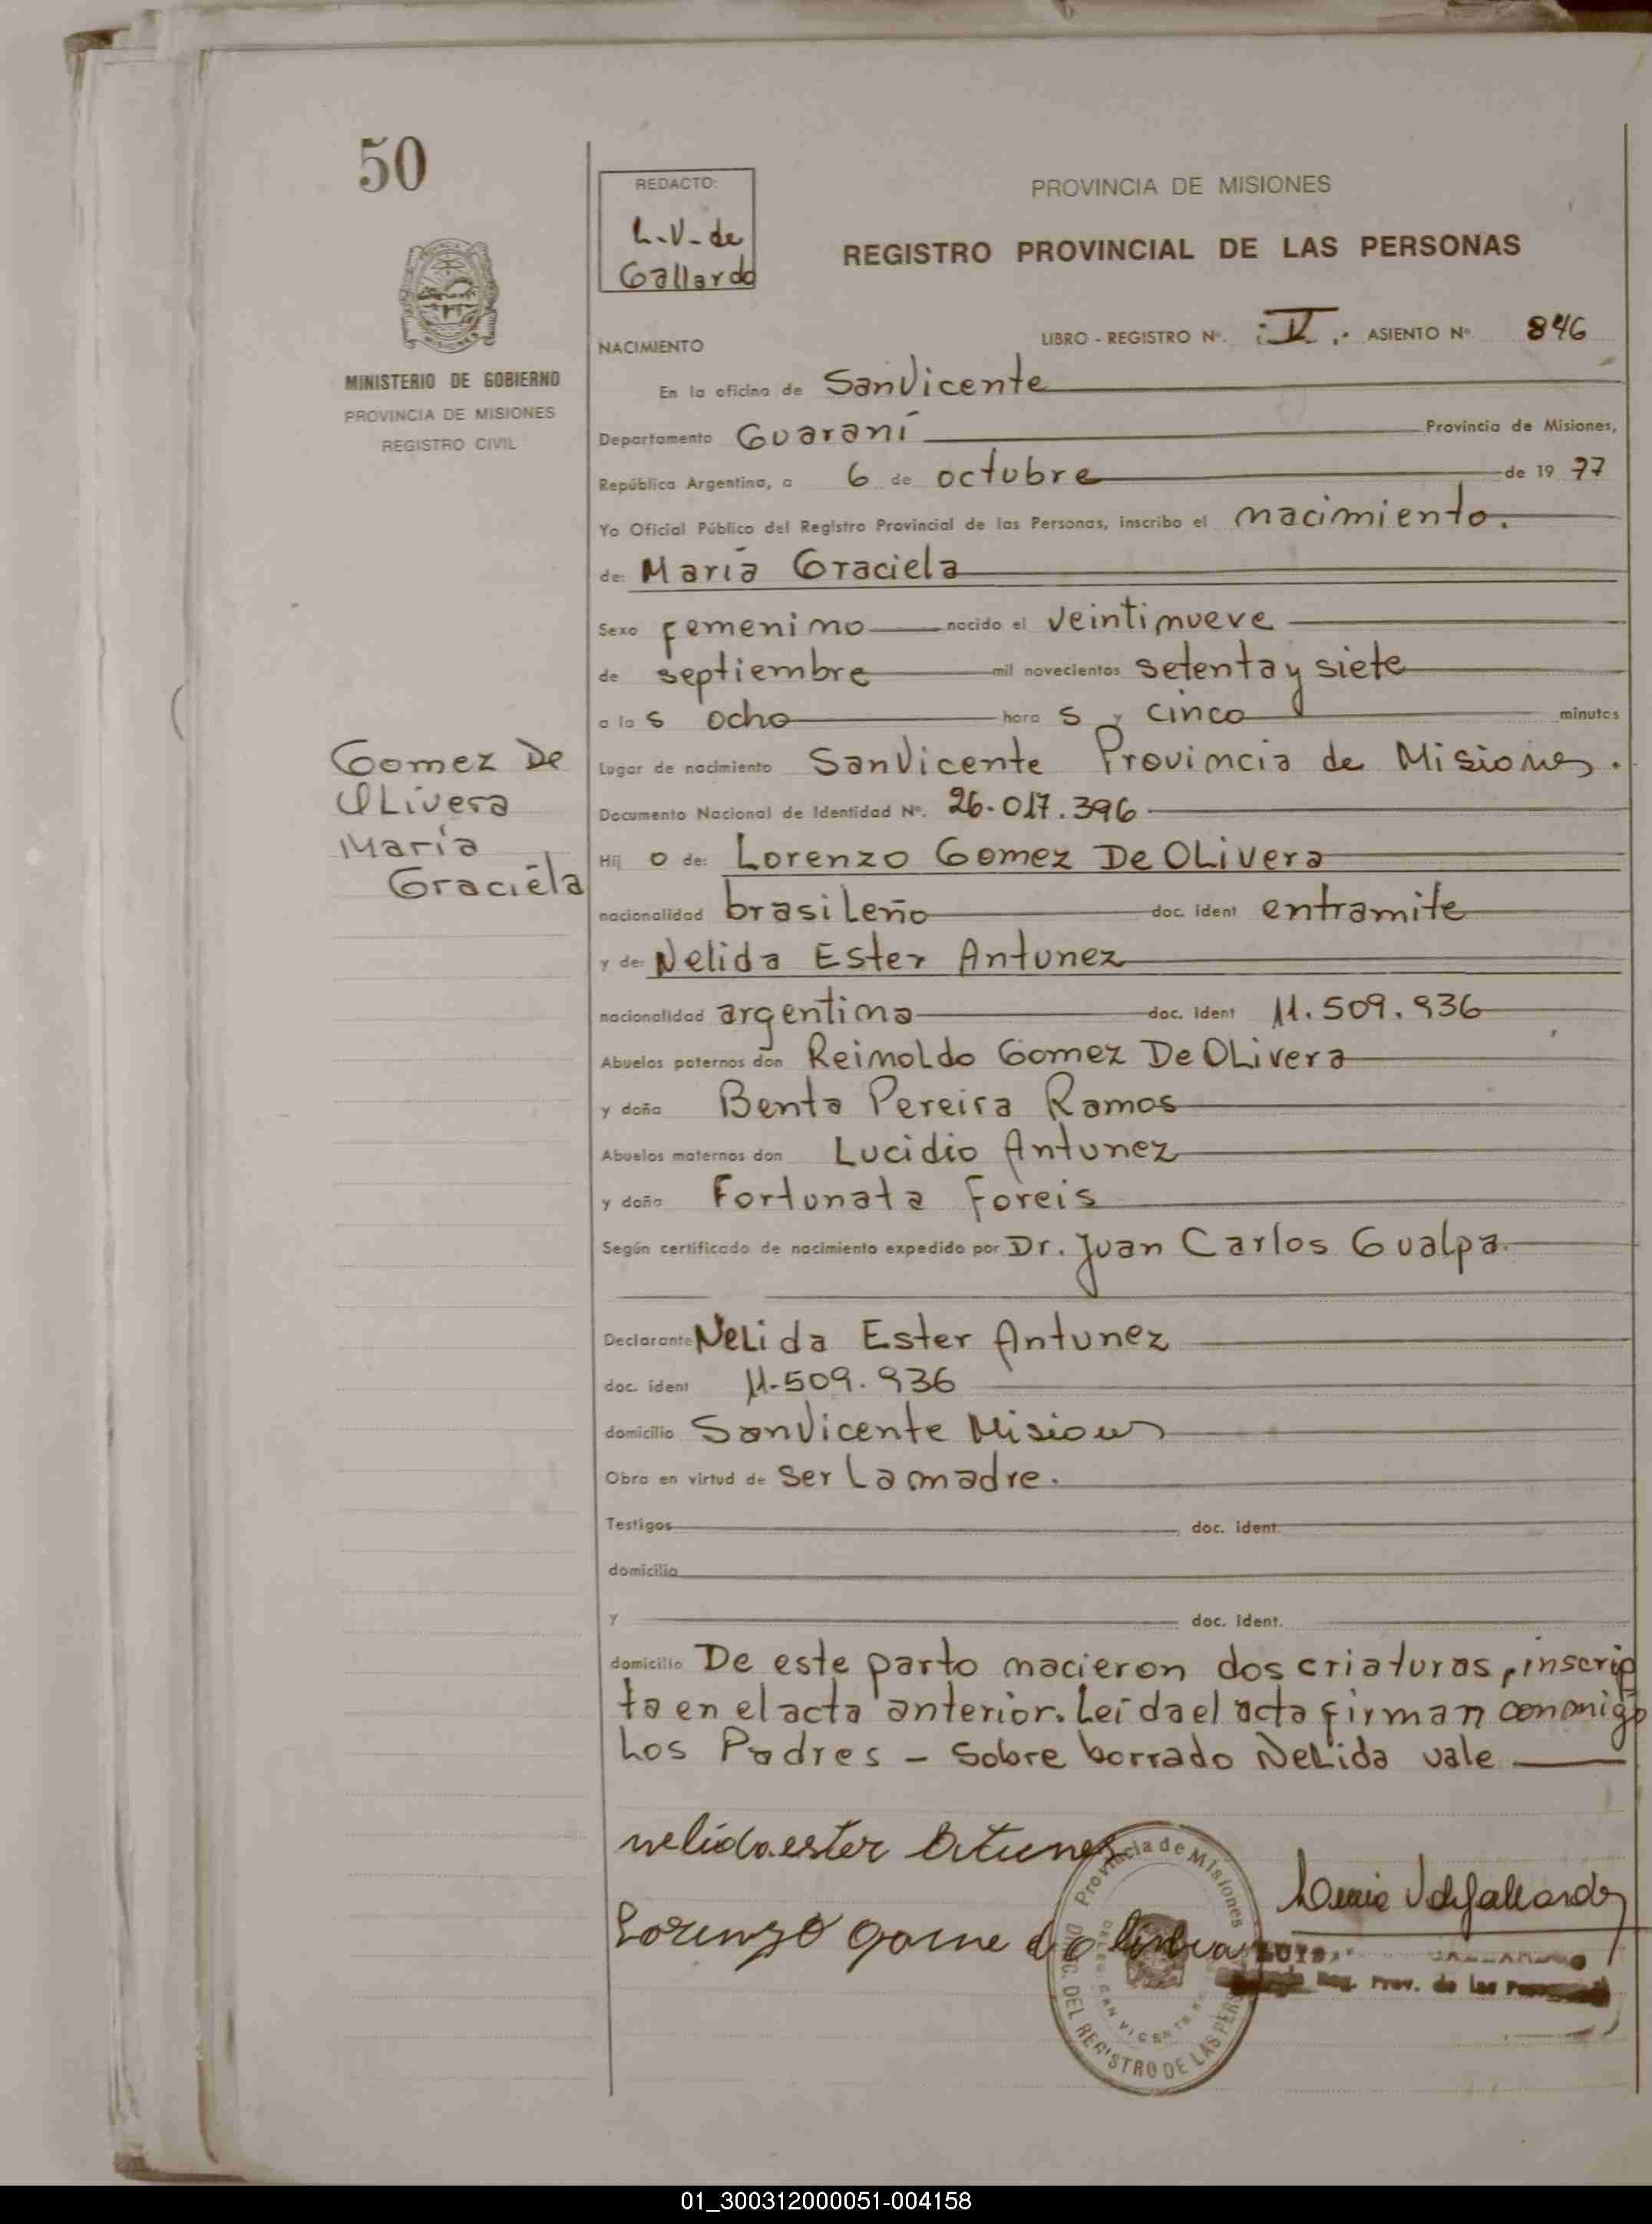 50
REDACTO:
L.V. de
Gallardo
PROVINCIA DE MISIONES
REGISTRO PROVINCIAL DE LAS PERSONAS
MINISTERIO DE GOBIERNO
PROVINCIA DE MISIONES
REGISTRO CIVIL
NACIMIENTO
LIBRO - REGISTRO Nº. V ASIENTO Nº 846
En la oficina de San Vicente
Departamento Guaraní Provincia de Misiones,
República Argentina, a 6 de octubre de 1977
Yo Oficial Público del Registro Provincial de las Personas, inscribo el nacimiento.
de: María Graciela
Sexo femenino nacido el veintinueve
de septiembre mil novecientos setenta y siete
a las ocho horas y cinco minutos
Gomez De
Olivera
María
Graciela
Lugar de nacimiento San Vicente Provincia de Misiones.
Documento Nacional de Identidad Nº. 26.017.396
Hijo de: Lorenzo Gomez De OLivera
nacionalidad brasileño doc. ident entramite
y de: Nelida Ester Antunez
nacionalidad argentina doc. ident 11.509.936
Abuelos paternos don Reinoldo Gomez De OLivera
y doña Benta Pereira Ramos
Abuelos maternos don Lucidio Antunez
y doña Fortunata Foreis
Según certificado de nacimiento expedido por Dr. Juan Carlos Gualpa.
Declarante NeLida Ester Antunez
doc. ident 11-509.936
domicilio San Vicente Misiones
Obra en virtud de ser La madre.
Testigos doc. ident.
domicilio
y doc. ident.
domicilio De este parto nacieron dos criaturas, inscrip
ta en el acta anterior. Leída el acta firman conmigo
Los Padres - Sobre borrado NeLida vale
nelida ester
Provincia de Misiones
Lorenzo gome
DEL REGISTRO DE LAS PERS
SAN VICENTE
Reg. Prov. de las
01_300312000051-004158